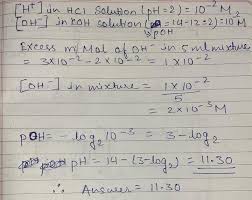 [H⁺] in HCl solution (pH=2) = 10⁻² M,
[OH⁻] in KOH solution (=14-12=2) = 10⁻² M
↳ pOH
Excess m Mol of OH⁻ in 5 ml mixture
= 3×10⁻² - 2×10⁻² = 1×10⁻²
[OH⁻] in mixture = 1×10⁻²
5
= 2×10⁻³ M
pOH = -log 2 10⁻³ = 3 - log 2
pH = 14 - (3 - log 2) = 11.30
∴ Answer = 11.30